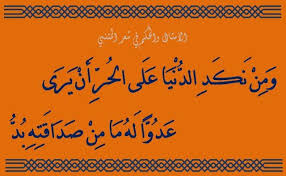 الامثال والحكم في شعر المتنبي
وَمِنْ نَكَدِ الدُّنْيَا عَلَى الحُرِّ أَنْ يَرَى
عَدُوًّا لَهُ مَا مِنْ صَدَاقَتِهِ بُدُّ